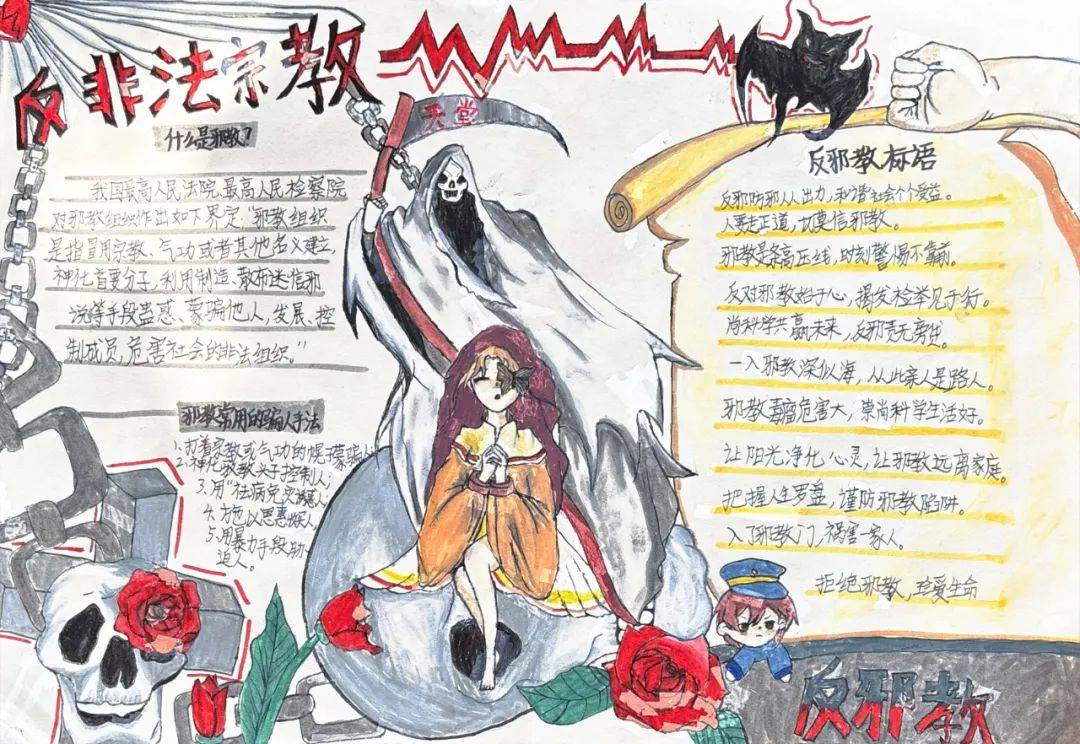 反非法宗教
天堂
什么是邪教?
我国最高人民法院、最高人民检察院
对邪教组织作出如下界定:"邪教组织
是指冒用宗教、气功或者其他名义建立,
神化首要分子,利用制造、散布迷信邪
说等手段蛊惑、蒙骗他人,发展、控
制成员,危害社会的非法组织。"
邪教常用的骗人手法
1.打着宗教或气功的幌子蒙骗人
2.神化教主头子控制人;
3.用"祛病免灾
4.方包以恩惠
5.用暴力手段胁
迫人。
反邪教标语
反邪防邪人人出力,和谐社会个个受益。
人要走正道,切莫信邪教。
邪教是条高压线,时刻警惕不靠前。
反对邪教始于心,揭发检举见于行。
尚科学共赢未来,反邪责无旁贷。
一入邪教深似海,从此亲人是路人。
邪教毒瘤危害大,崇尚科学生活好。
让阳光净化心灵,让邪教远离家庭。
把握人生罗盘,谨防邪教陷阱。
入了邪教门,祸害一家人。
拒绝邪教,珍爱生命
反邪教